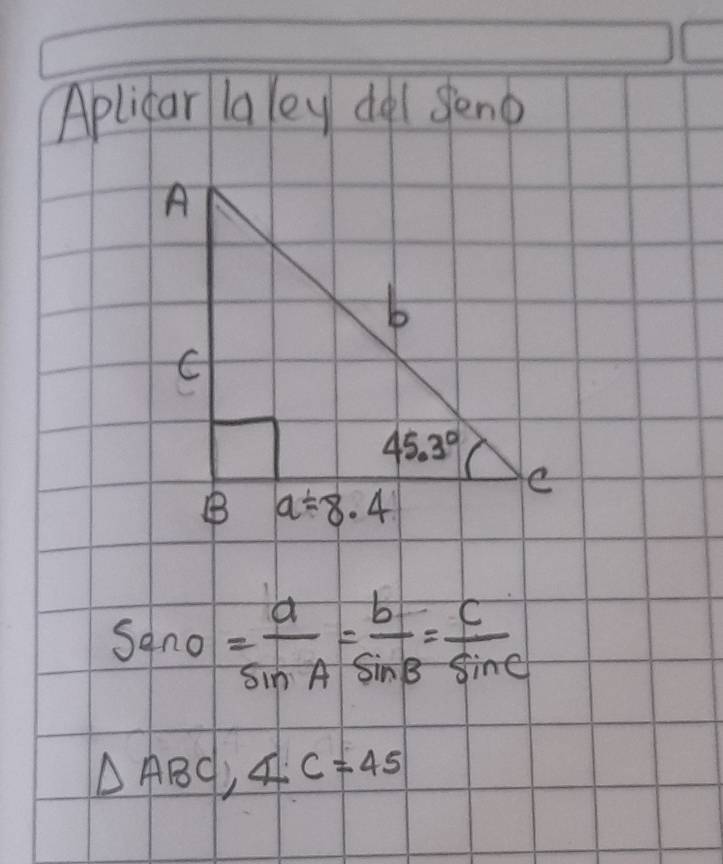 Aplicar la ley del Seno
A
b
C
45.3°
C
B a=8.4
Seno = a/Sin A = b/Sin B = c/Sin C
Δ ABC, ∡ C = 45